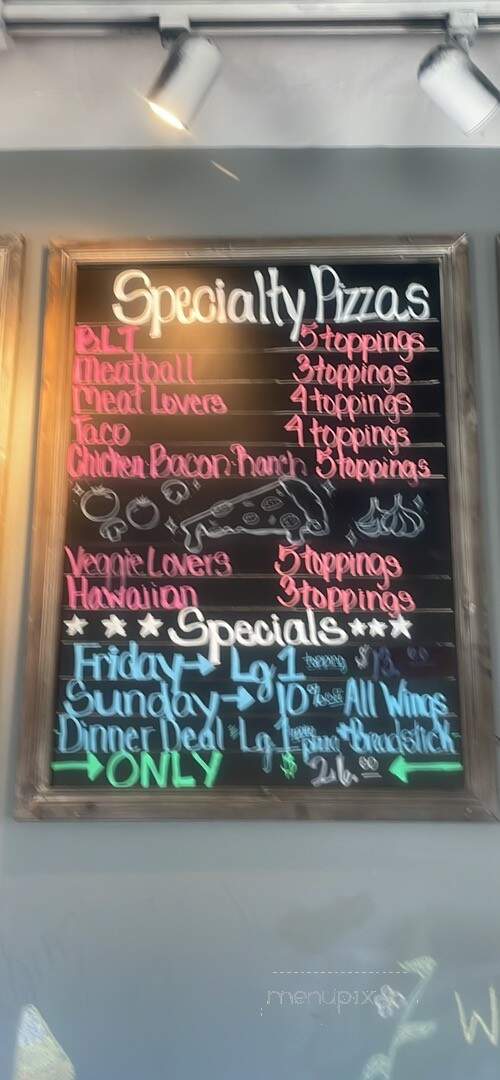 Specialty Pizzas
BLT 5 toppings
Meatball 3 toppings
Meat Lovers 4 toppings
Taco 4 toppings
Chicken Bacon Ranch 5 toppings
Veggie Lovers 5 toppings
Hawaiian 3 toppings
Specials
Friday → Lg 1 topping $
Sunday → 10% off All Wings
Dinner Deal Lg 1 Bradstick
→ ONLY $26.00 ←
menupix
W